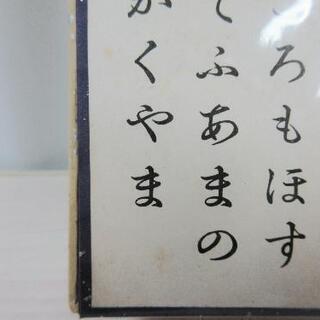 ころもほす
てふあまの
かくやま